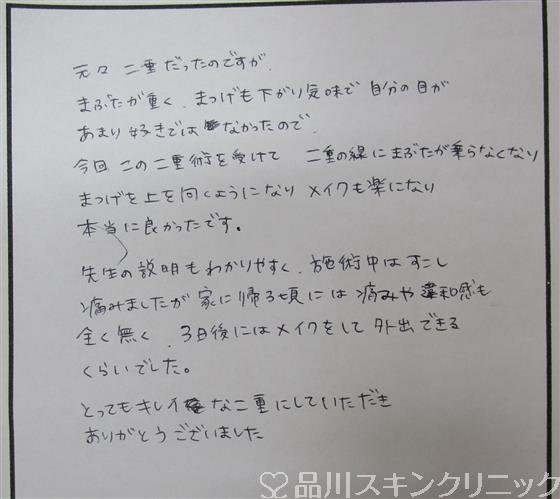 元々 二重だったのですが、
まぶたが重く、まつげも下がり気味で 自分の目が
あまり好きでは なかったので、
今回 この二重術を受けて 二重の線にまぶたが乗らなくなり
まつげを上を向くようになり メイクも楽になり
本当に良かったです。
先生の説明もわかりやすく、施術中は すこし
痛みましたが 家に帰る頃には 痛みや 違和感も
全く無く、3日後にはメイクをして 外出できる
くらいでした。
とってもキレイな二重にしていただき
ありがとうございました
品川スキンクリニック